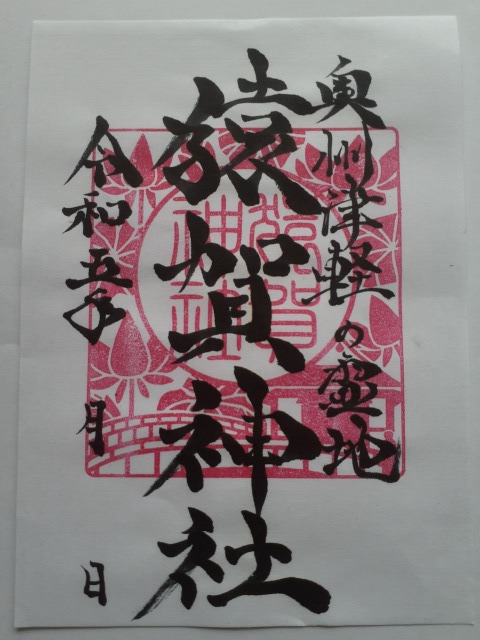 奥州津軽の霊地
猿賀神社
令和五年
月
日
猿賀
神社